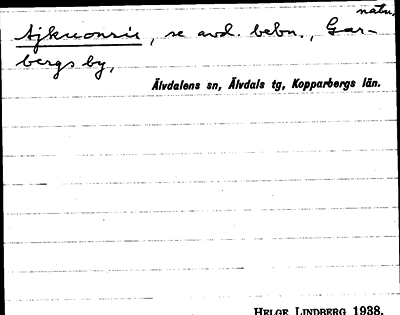 natu.
se avd. bebn., Gar-
bergs by,
Älvdalens sn, Älvdals tg, Kopparbergs län.
HELGE LINDBERG 1938.